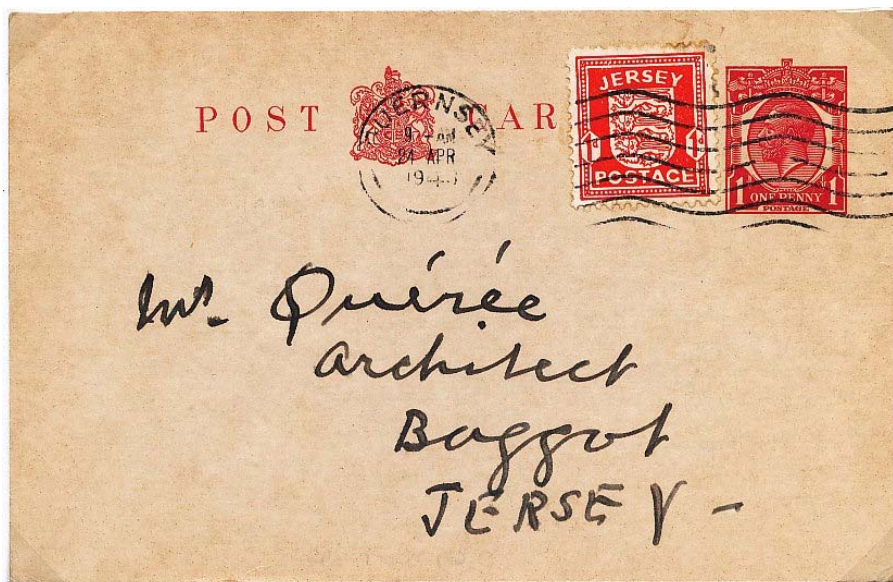 POST CARD
GUERNSEY
9 - AM
24 APR
194
JERSEY
1d 1d
POSTAGE
1 ONE PENNY 1
POSTAGE
Mr. Quérée
Architect
Baggot
JERSEY -